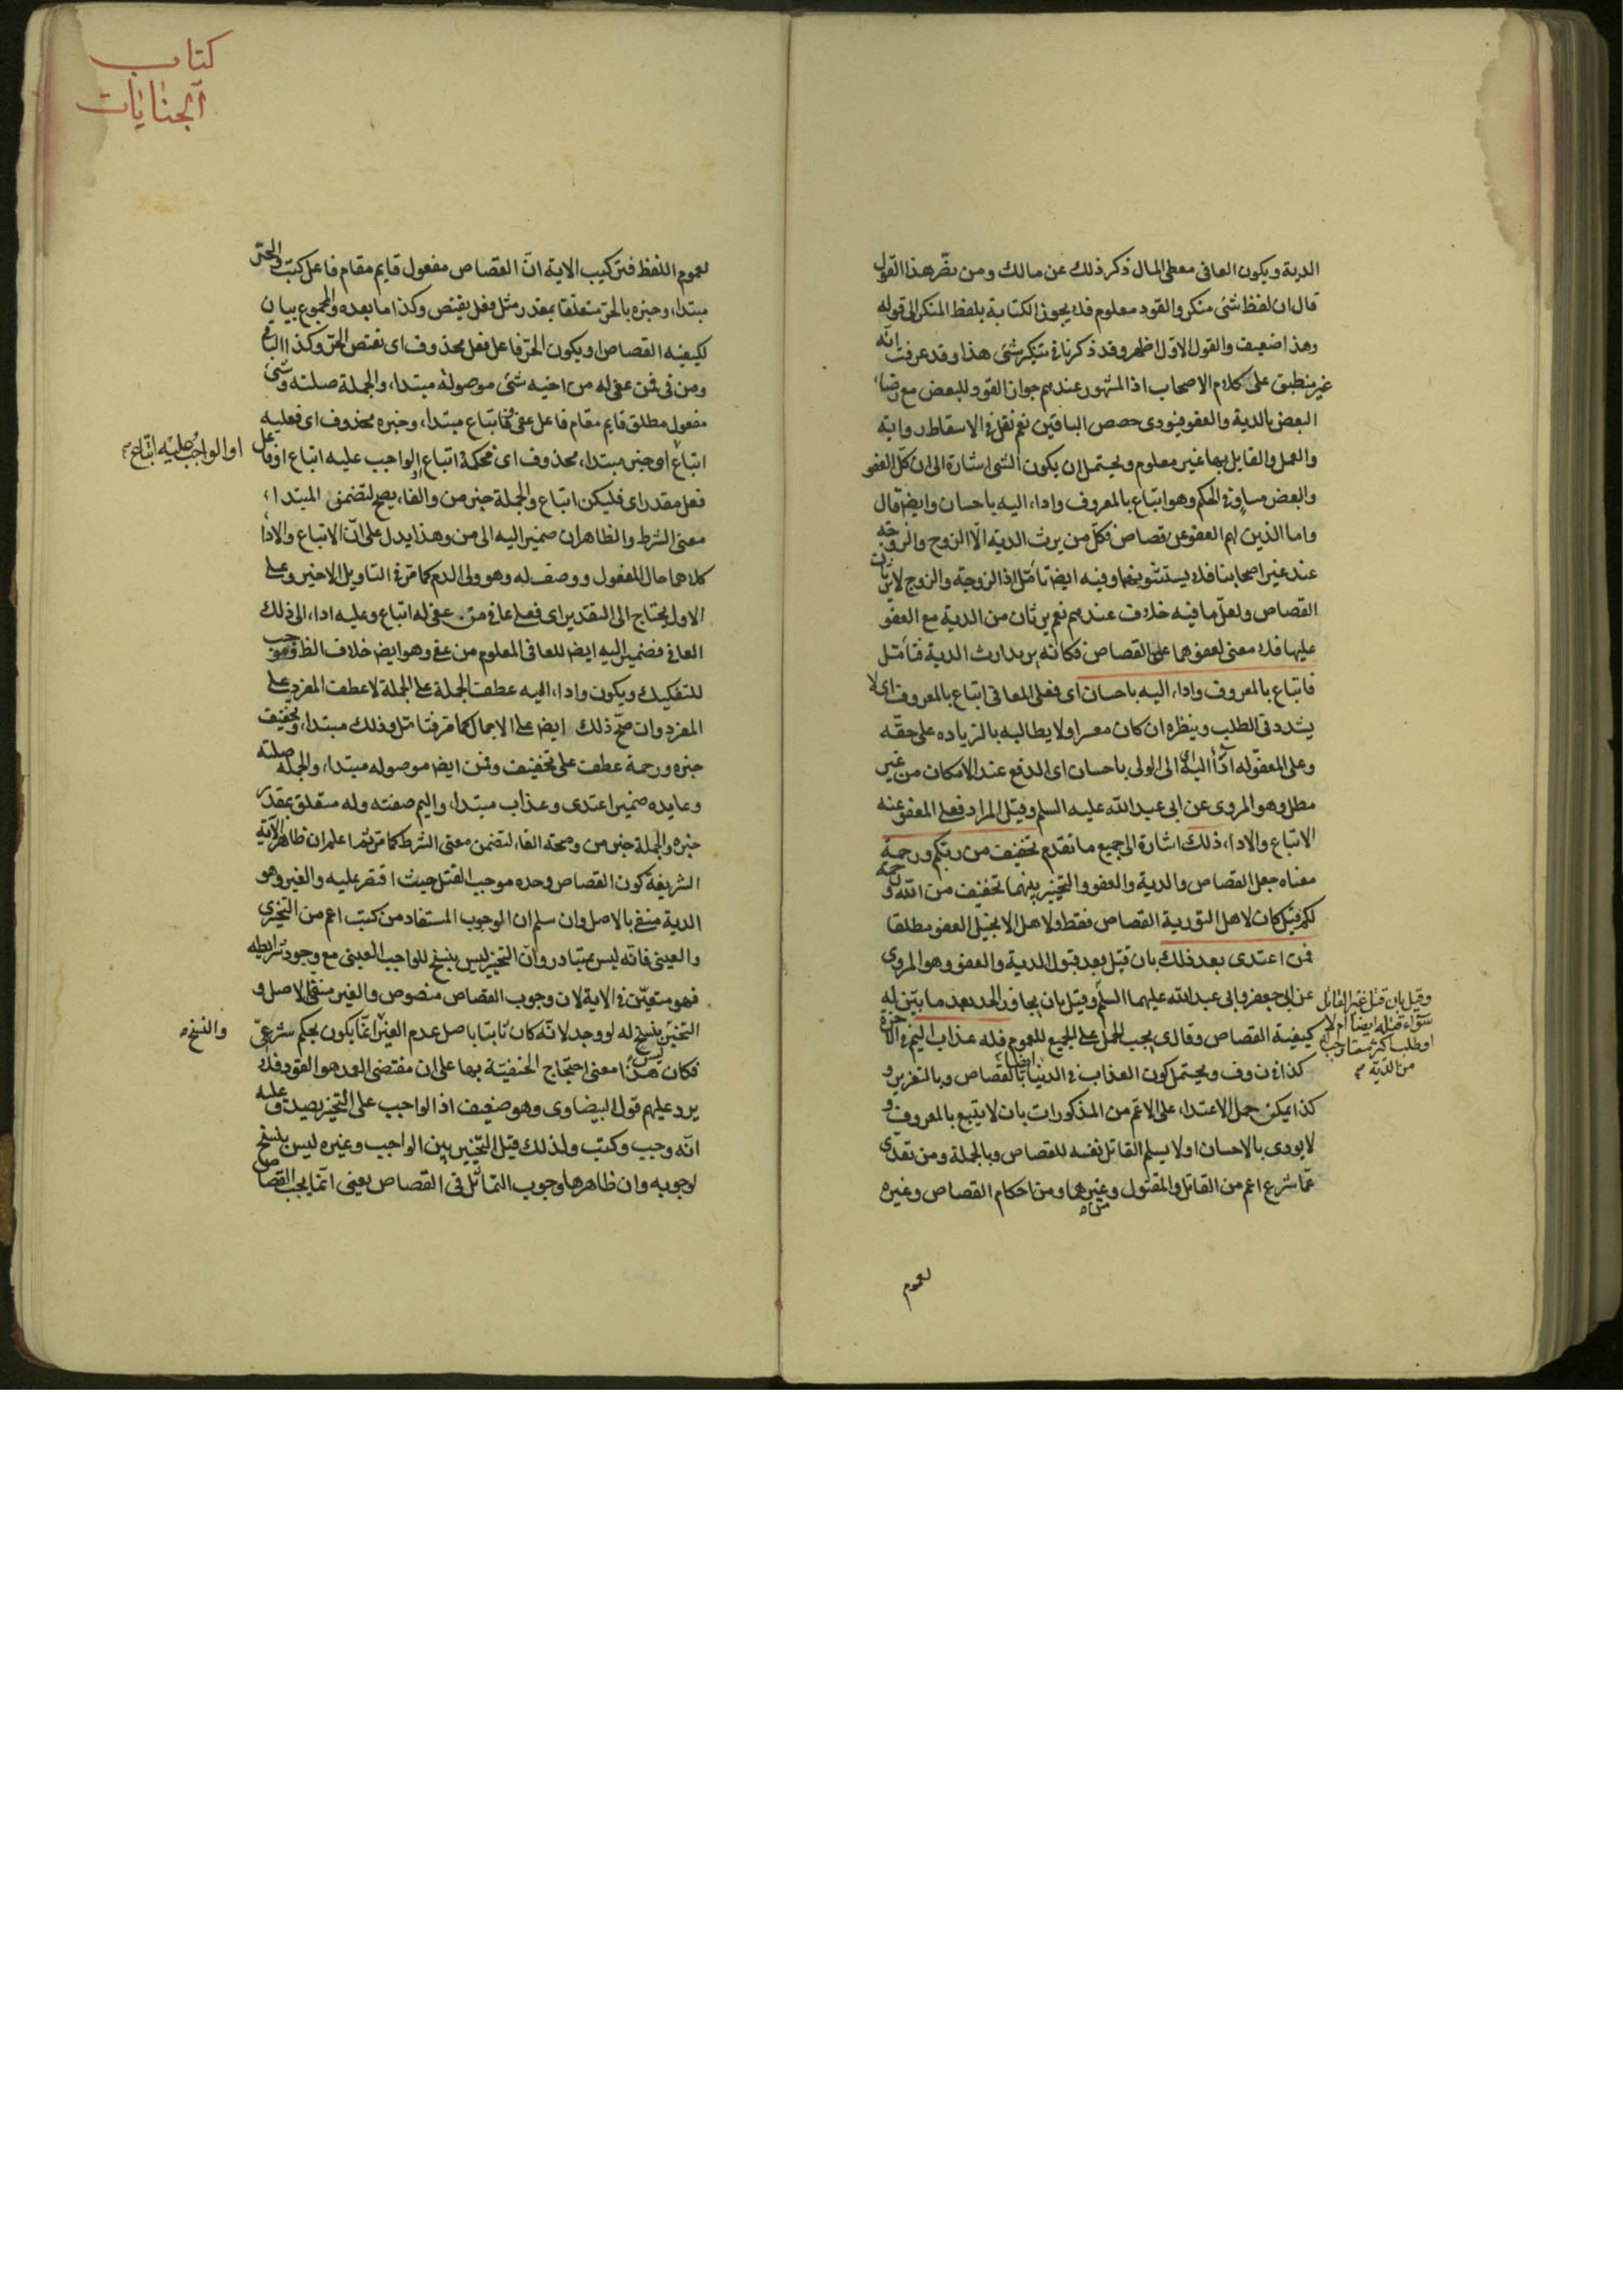 الدية ويكون العافى معطى المال ذكر ذلك عن مالك ومن نصر هذا القول
قال ان لفظ شئ منكر والقود معلوم فلا يجوز الكتابة بلفظ المنكر الى قوله
وهذا ضعيف والقول الاول اظهر وقد ذكرنا فى تنكير شئ هذا وقد عرفت انه
غير منطبق على كلام الاصحاب اذ المشهور عندهم جواز القود للبعض مع رضاء
البعض بالدية والعفو فيؤدى حصص الباقين نعم نقل فى الاسقاط رواية
والعمل والقايل بها غير معلوم ويحتمل ان يكون الشئ اشارة الى ان كل العفو
والبعض مساو فى الحكم وهو اتباع بالمعروف واداء اليه باحسان وايضا قال
واما الذين لهم العفو عن قصاص فكل من يرث الدية الا الزوج والزوجة
عند غير اصحابنا فلا يستثنونهما وفيه ايضا تأمل اذ الزوجة والزوج لا يرثان
القصاص ولعل ما فيه خلاف عندهم نعم يرثان من الدية مع العفو
عليها فلا معنى لعفوهما على القصاص فكانه يريد ارث الدية فتأمل
فاتباع بالمعروف واداء اليه باحسان اى فعلى العافى اتباع بالمعروف اى لا
يشدد فى الطلب وينظره ان كان معسرا ولا يطالبه بالزيادة على حقه
وعلى المعفو له اداء اليه اى الى الولى باحسان اى الدفع عند الامكان من غير
مطل وهو المروى عن ابى عبد الله عليه السلم وقيل المراد فعلى المعفو عنه
الاتباع والاداء ذلك اشارة الى جميع ما تقدم تخفيف من ربكم ورحمة
معناه جعل القصاص والدية والعفو والتخيير بينهما تخفيف من الله ورحمة
لكم قيل كان لاهل التورية القصاص فقط ولاهل الانجيل العفو مطلقا
فمن اعتدى بعد ذلك بان قتل بعد قبول الدية والعفو وهو المروى
عن ابى جعفر وابى عبد الله عليهما السلم وقيل بان يجاوز الحد بعد ما بين له
كيفية القصاص وقال اى يجب الحمل على الجميع للعموم فله عذاب اليم فى الاخرة
كذا فى ن وف ويحتمل كون العذاب فى الدنيا ايضا بالقصاص وبالتعزير و
كذا يمكن حمل الاعتداء على الاعم من المذكورات بان لا يتبع بالمعروف و
لا يودى بالاحسان او لا يسلم القاتل نفسه للقصاص وبالجملة ومن تعدى
عما شرع اعم من القاتل والمقتول وغيرهما ومن احكام القصاص وغيره
وقيل بان قتل غير القاتل
سواء قتله ايضا ام لا
او طلب اكثر مما وجب له
من الدية
لعموم
كتاب
الجنايات
لعموم اللفظ فتركيب الاية ان القصاص مفعول قايم مقام فاعل كتب والحر
مبتداء وخبره بالحر متعلقا بمقدر مثل فعل يقتص وكذا ما بعده والمجموع بيان
لكيفية القصاص او يكون الحر فاعل فعل محذوف اى يقتص الحر وكذا الباقى
ومن فى فمن عفى له من اخيه شئ موصولة مبتداء والجملة صلته وشئ
مفعول مطلق قايم مقام فاعل عفى فاتباع مبتداء وخبره محذوف اى فعليه
اتباع او خبر مبتداء محذوف اى فحكمه اتباع او الواجب عليه اتباع او فاعل
فعل مقدر اى فليكن اتباع والجملة خبر من والفاء يصح لتضمن المبتداء
معنى الشرط والظاهر ان ضمير اليه الى من وهذا يدل على ان الاتباع والاداء
كلاهما حال المفعول ووصف له وهو ولى الدم كما مر فى التاويل الاخير وعلى
الاول يحتاج الى التقدير اى فعلى عافى من عفى له اتباع وعليه اداء الى ذلك
العافى فضمير اليه ايضا للعافى المعلوم من عفى وهو ايضا خلاف الظ وموجب
للتفكيك ويكون واداء اليه عطف الجملة على الجملة لا عطف المفرد على
المفرد وان صح ذلك ايضا على الاجمال كما مر فتامل وذلك مبتداء وتخفيف
خبره ورحمة عطف على تخفيف وفمن ايضا موصوله مبتداء والجملة صلته
وعايده ضمير اعتدى وعذاب مبتداء واليم صفته وله متعلق بمقدر
خبره والجملة خبر من وصحة الفاء لتضمن معنى الشرط كما مر ثم اعلم ان ظاهر الاية
الشريفة كون القصاص وحده موجب القتل حيث اقتصر عليه والغير وهو
الدية منفى بالاصل وان سلم ان الوجوب المستفاد من كتب اعم من التخييرى
والعينى فانه ليس بمتبادر وان التخيير ليس بنسخ للواجب العينى مع وجود شرايطه
فهو متعين فى الاية لان وجوب القصاص منصوص والغير منفى بالاصل و
التخيير ينسخ له لو وجد لانه كان ثابتا باصل عدم الغير انما يكون بحكم شرعى
فكان هذا معنى احتجاج الحنفية بها على ان مقتضى العمد هو القود فلا
يرد عليهم قول البيضاوى وهو ضعيف اذ الواجب على التخيير يصدق عليه
انه وجب وكتب ولذلك قيل التخيير بين الواجب وغيره ليس بنسخ
لوجوبه وان ظاهرها وجوب التماثل فى القصاص يعنى انما يجب القصاص
او الواجب عليه اتباع
والنسخ